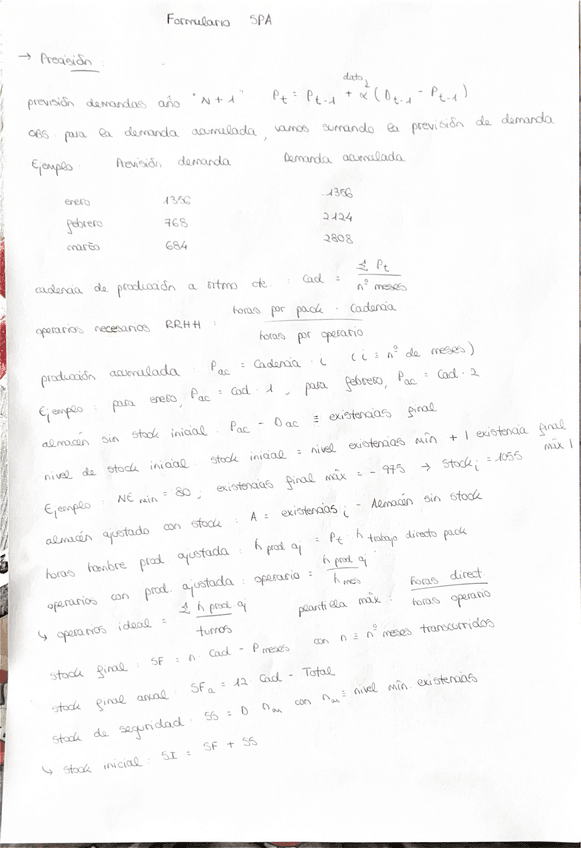 Formulario SPA
→ Previsión:
previsión demandas año "N+1" Pt = Pt-1 + α (Dt-1 - Pt-1)
dato
OBS para la demanda acumulada, vamos sumando la previsión de demanda
Ejemplo: Previsión demanda Demanda acumulada
enero 1356 1356
febrero 768 2124
marzo 684 2808
cadencia de producción a ritmo cte.: Cad = Σ Pt / nº meses
operarios necesarios RRHH: horas por pack · Cadencia / horas por operario
producción acumulada: Pac = Cadencia · i (i ≡ nº de meses)
Ejemplo: para enero, Pac = Cad · 1, para febrero, Pac = Cad · 2
almacén sin stock inicial: Pac - Dac ≡ existencias final
nivel de stock inicial: stock inicial = nivel existencias mín + | existencia final máx |
Ejemplo: NE min = 80; existencias final máx = -975 → Stocki = 1055
almacén ajustado con stock: A = existencias i - Almacén sin stock
horas hombre prod ajustada: h prod aj = Pt · h trabajo directo pack
operarios con prod. ajustada: operario = h prod aj / h mes
↳ operarios ideal = Σ h prod aj / turnos plantilla máx: horas direct / horas operario
stock final: SF = n · Cad - Pmeses con n ≡ nº meses transcurridos
stock final anual: SFa = 12 · Cad - Total
stock de seguridad: SS = D · nm con nm ≡ nivel mín. existencias
↳ stock inicial: SI = SF + SS